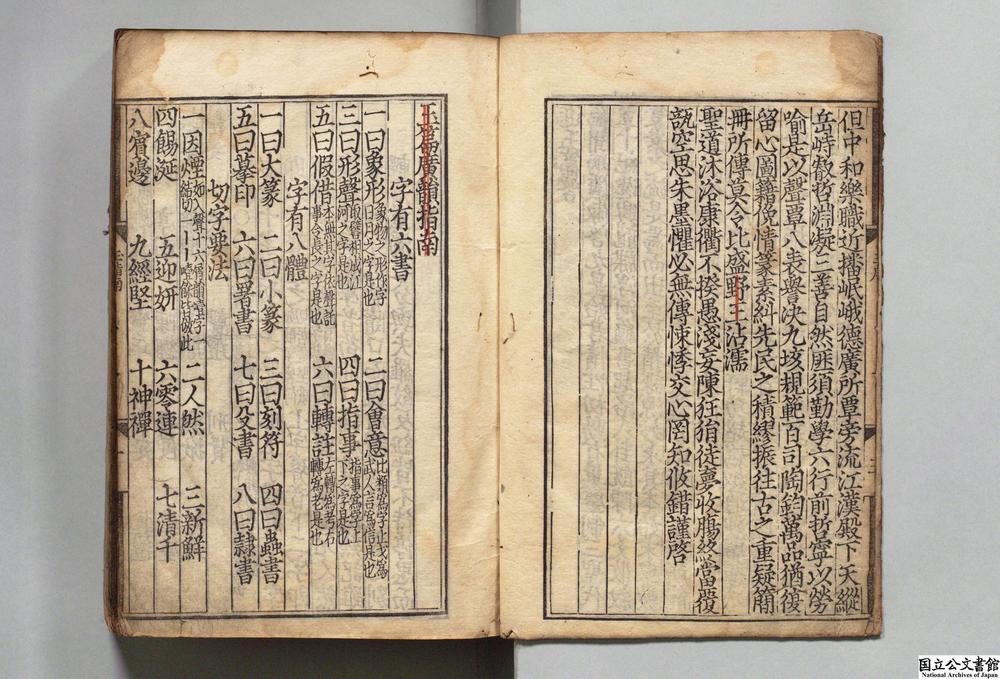 但中和樂職近播岷峨德廣所覃旁流江漢殿下天縱
岳峙叡哲淵凝二善自然匪須勤學六行前哲寧以勞
喻是以聲覃八表譽決九垓規範百司陶鈞萬品猶復
留心圖籍俛情篆素糾先民之積繆振往古之重疑簡
冊所傳莫令比盛野王沾濡
聖道沐浴康衢不揆愚淺妄陳狂狷徒夢收腸終當覆
瓿空思朱墨懼必無傳悚悸交心罔知攸錯謹啓
玉篇廣韻指南
字有六書
一曰象形 象物之形作字日月之字是也 二曰會意 比類爲字止戈爲武人言爲信是也
三曰形聲 取譬相成江河之字是也 四曰指事 指事爲字上下之字是也
五曰假借 本無其字依聲託事令長之字是也 六曰轉註 左轉爲考右轉爲老是也
字有八體
一曰大篆 二曰小篆 三曰刻符 四曰蟲書
五曰摹印 六曰署書 七曰殳書 八曰隷書
切字要法
一因煙 二人然 三新鮮
四餳涎 五迎妍 六零連 七清千
八賓邊 九經堅 十神禪
国立公文書館
National Archives of Japan